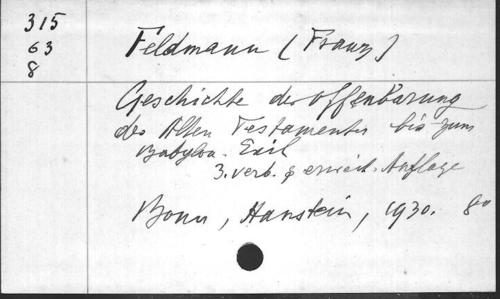 315
63
8
Feldmann (Franz)
Geschichte der Offenbarung
des Alten Testamentes bis zum
Babylon. Exil
3. verb. & erweit. Auflage
Bonn, Hanstein, 1930. 8o